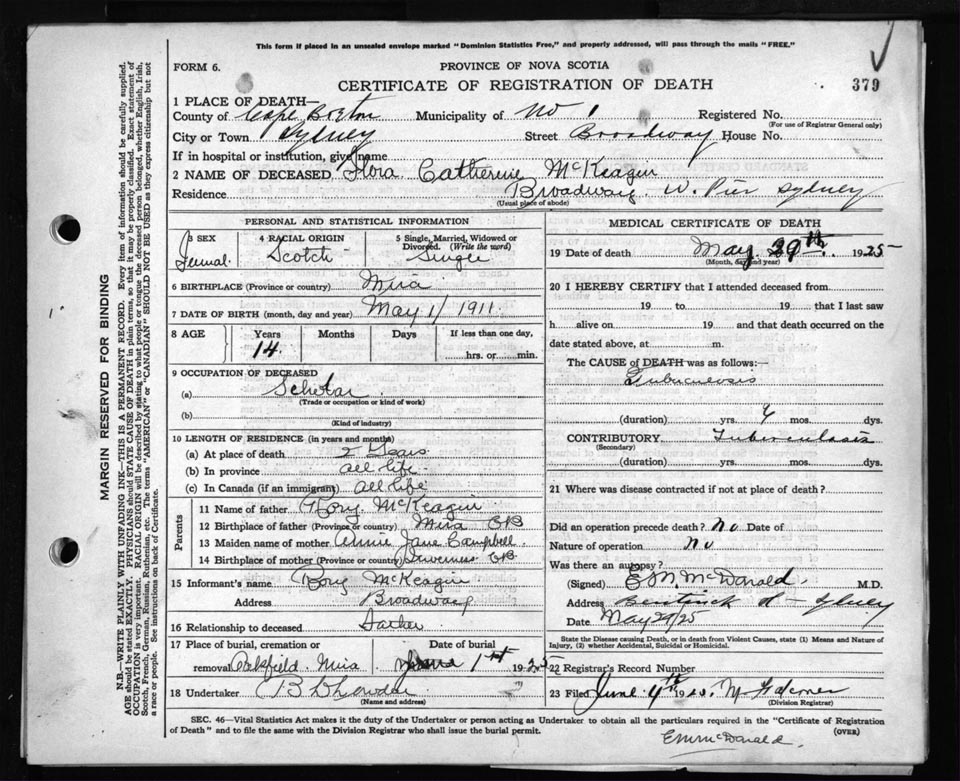 This form if placed in an unsealed envelope marked "Dominion Statistics Free," and properly addressed, will pass through the mails "FREE."
FORM 6.
PROVINCE OF NOVA SCOTIA
CERTIFICATE OF REGISTRATION OF DEATH
379
1 PLACE OF DEATH—
County of Cape Breton Municipality of No 1 Registered No.
(For use of Registrar General only)
City or Town Sydney Street Broadway House No.
If in hospital or institution, give name
2 NAME OF DECEASED Flora Catherine McKeagin
Residence Broadway W. Pier Sydney
(Usual place of abode)
PERSONAL AND STATISTICAL INFORMATION
3 SEX 4 RACIAL ORIGIN 5 Single, Married, Widowed or Divorced. (Write the word)
Femal. Scotch Single
6 BIRTHPLACE (Province or country) Mira
7 DATE OF BIRTH (month, day and year) May 1/ 1911
8 AGE Years Months Days If less than one day,
14 hrs. or min.
9 OCCUPATION OF DECEASED
(a) Scholar
(Trade or occupation or kind of work)
(b)
(Kind of industry)
10 LENGTH OF RESIDENCE (in years and months)
(a) At place of death 2 Years
(b) In province all life
(c) In Canada (if an immigrant) all life
Parents
11 Name of father Rory McKeagin
12 Birthplace of father (Province or country) Mira CB
13 Maiden name of mother Annie Jane Campbell
14 Birthplace of mother (Province or country) CB
15 Informant's name Rory McKeagin
Address Broadway
16 Relationship to deceased Father
17 Place of burial, cremation or removal Oakfield Mira Date of burial June 1st 1925
18 Undertaker
(Name and address)
MEDICAL CERTIFICATE OF DEATH
19 Date of death May 29th 1925
(Month, day and year)
20 I HEREBY CERTIFY that I attended deceased from
19 to 19 that I last saw
h alive on 19 and that death occurred on the
date stated above, at m.
The CAUSE of DEATH was as follows:
Tuberculosis
(duration) yrs. 4 mos. dys.
CONTRIBUTORY Tuberculosis
(Secondary)
(duration) yrs. mos. dys.
21 Where was disease contracted if not at place of death?
Did an operation precede death? no Date of
Nature of operation no
Was there an autopsy?
(Signed) E M McDonald M.D.
Address Bentinck St - Sydney
Date May 29/25
State the Disease causing Death, or in death from Violent Causes, state (1) Means and Nature of Injury, and (2) whether Accidental, Suicidal or Homicidal.
22 Registrar's Record Number
23 Filed June 4th 1925
(Division Registrar)
SEC. 46—Vital Statistics Act makes it the duty of the Undertaker or person acting as Undertaker to obtain all the particulars required in the "Certificate of Registration
of Death" and to file the same with the Division Registrar who shall issue the burial permit.
(OVER)
EM McDonald.
MARGIN RESERVED FOR BINDING
N.B.—WRITE PLAINLY WITH UNFADING INK—THIS IS A PERMANENT RECORD. Every item of information should be carefully supplied.
AGE should be stated EXACTLY. PHYSICIANS should STATE CAUSE OF DEATH in plain terms, so that it may be properly classified. Exact statement of
OCCUPATION is very important. RACIAL ORIGIN will be described by stating to what people or tongue the deceased person belonged, whether English, Irish,
Scotch, French, German, Russian, Ruthenian, etc. The terms "AMERICAN" or "CANADIAN" SHOULD NOT BE USED as they express citizenship but not
a race or people. See instructions on back of Certificate.